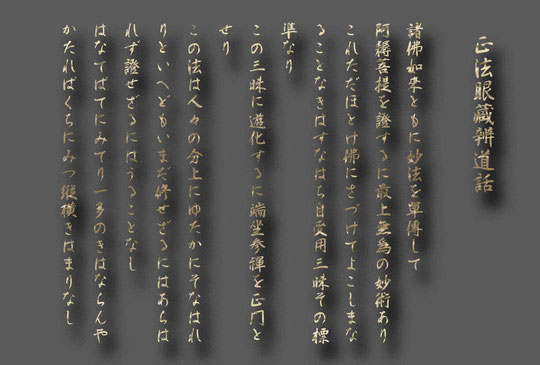 正法眼蔵辨道話
諸佛如来ともに妙法を單傳して
阿耨菩提を證するに最上無為の妙術あり
これただほとけ佛にさづけてよこしまな
ることなきはすなはち自受用三昧その標
準なり
この三昧に遊化するに端坐参禪を正門と
せり
この法は人々の分上にゆたかにそなはれ
りといへどもいまだ修せざるにはあらは
れず證せざるにはうることなし
はなてばてにみてり一多のきはならんや
かたればくちにみつ縦横きはまりなし